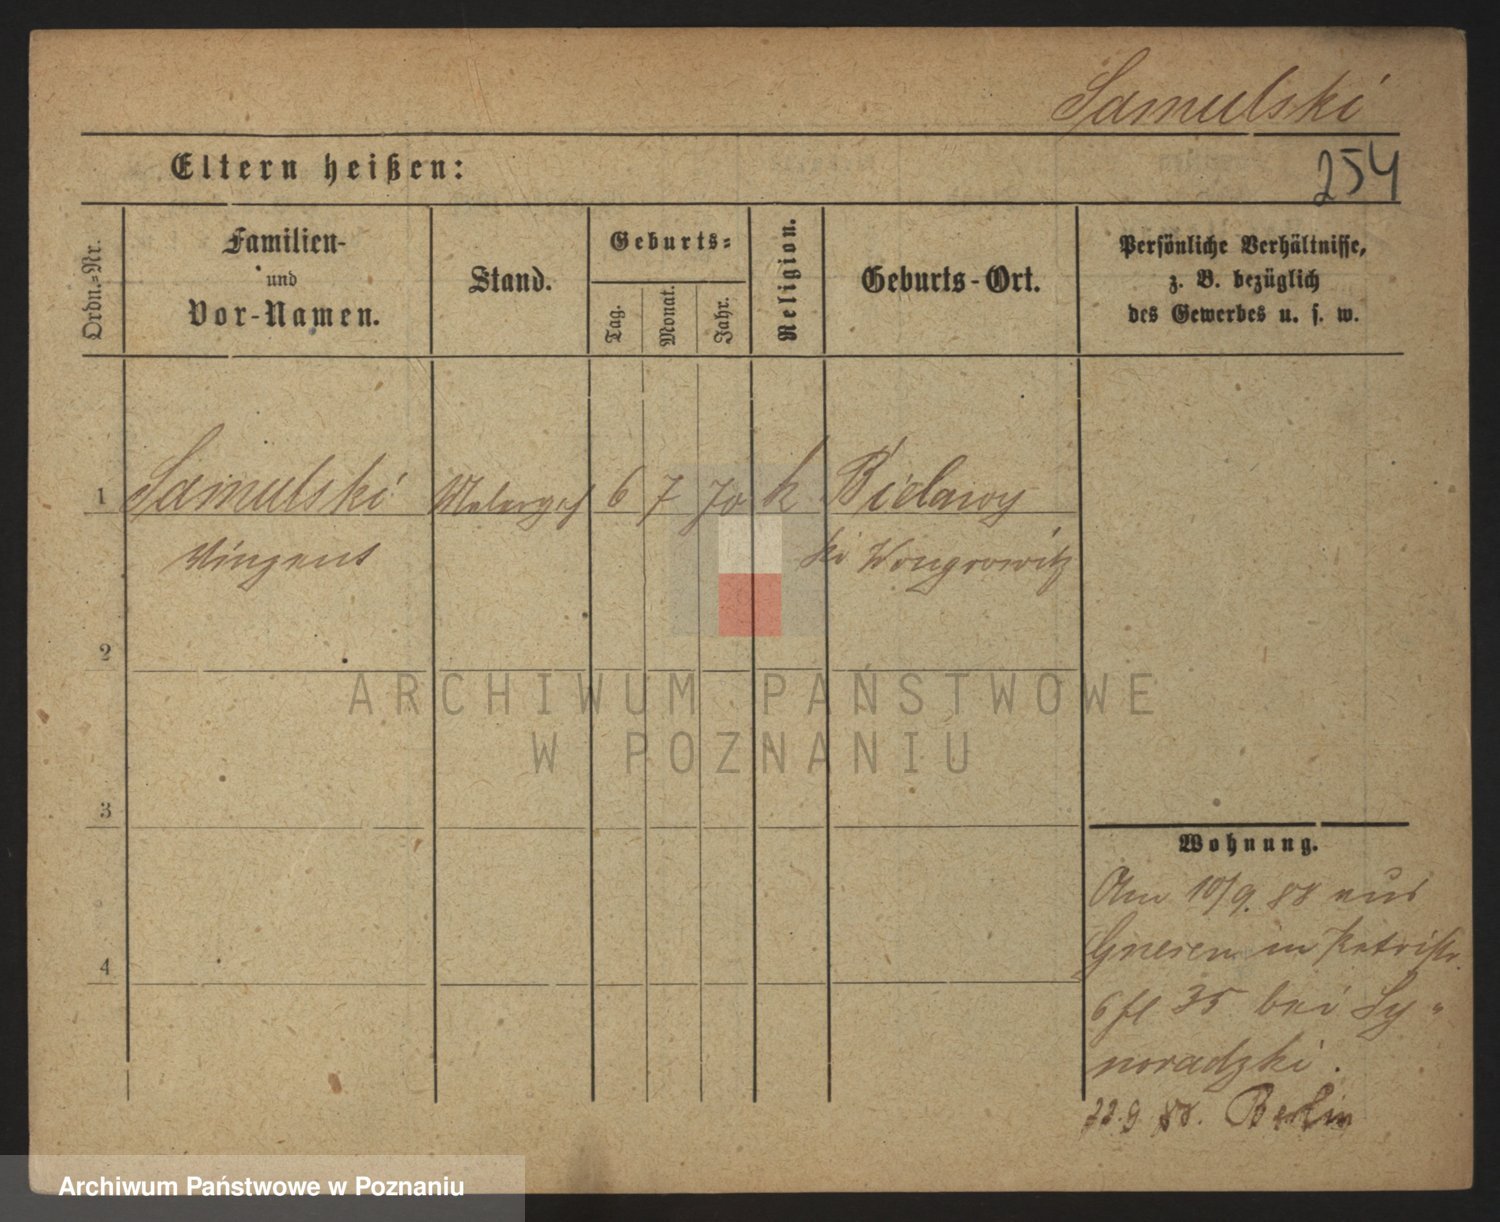 Samulski
Eltern heißen:
254
Ordn.-Nr.
Familien-
und
Vor-Namen.
Stand.
Geburts-
Tag.
Monat.
Jahr.
Religion.
Geburts-Ort.
Persönliche Verhältnisse,
z. B. bezüglich
des Gewerbes u. s. w.
1 Samulski Malergeh 6 7 70 k Bielawy
Vinzent Kr Wongrowitz
2
3
4
ARCHIWUM PAŃSTWOWE
W POZNANIU
Wohnung.
Am 10/9. 88 aus
Gnesen in Petristr.
6 fl 35 bei Sy-
noradzki.
22.9 88. Berlin
Archiwum Państwowe w Poznaniu